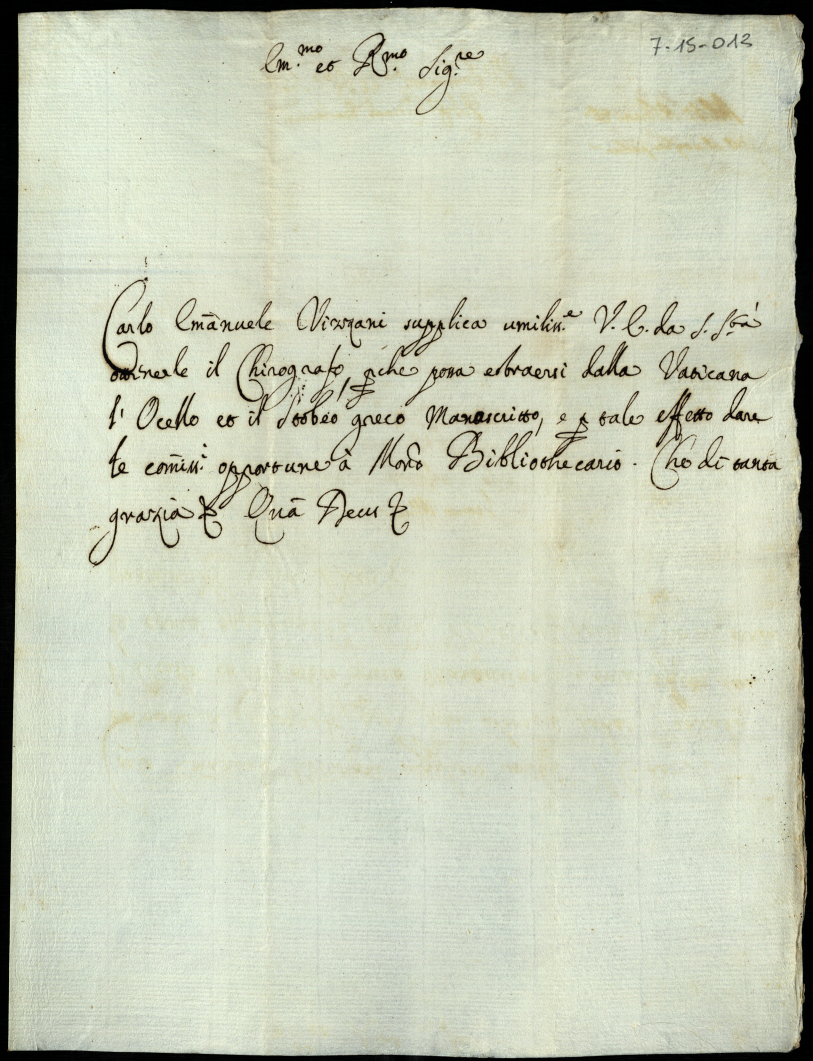 7-15-013
Em.mo et R.mo Sig.re
Carlo Emānuele Vizzani supplica umiliss.e V. E. da S. S.tà
ottenerle il Chirografo, ꝑche possa estraersi dalla Vaticana
l' Ocello et il Stobeo greco Manascritto, e ꝑ tale effetto dare
le com̄iss.i opportune à Bibliothecario. Che di tanta
grazia Quā Deus